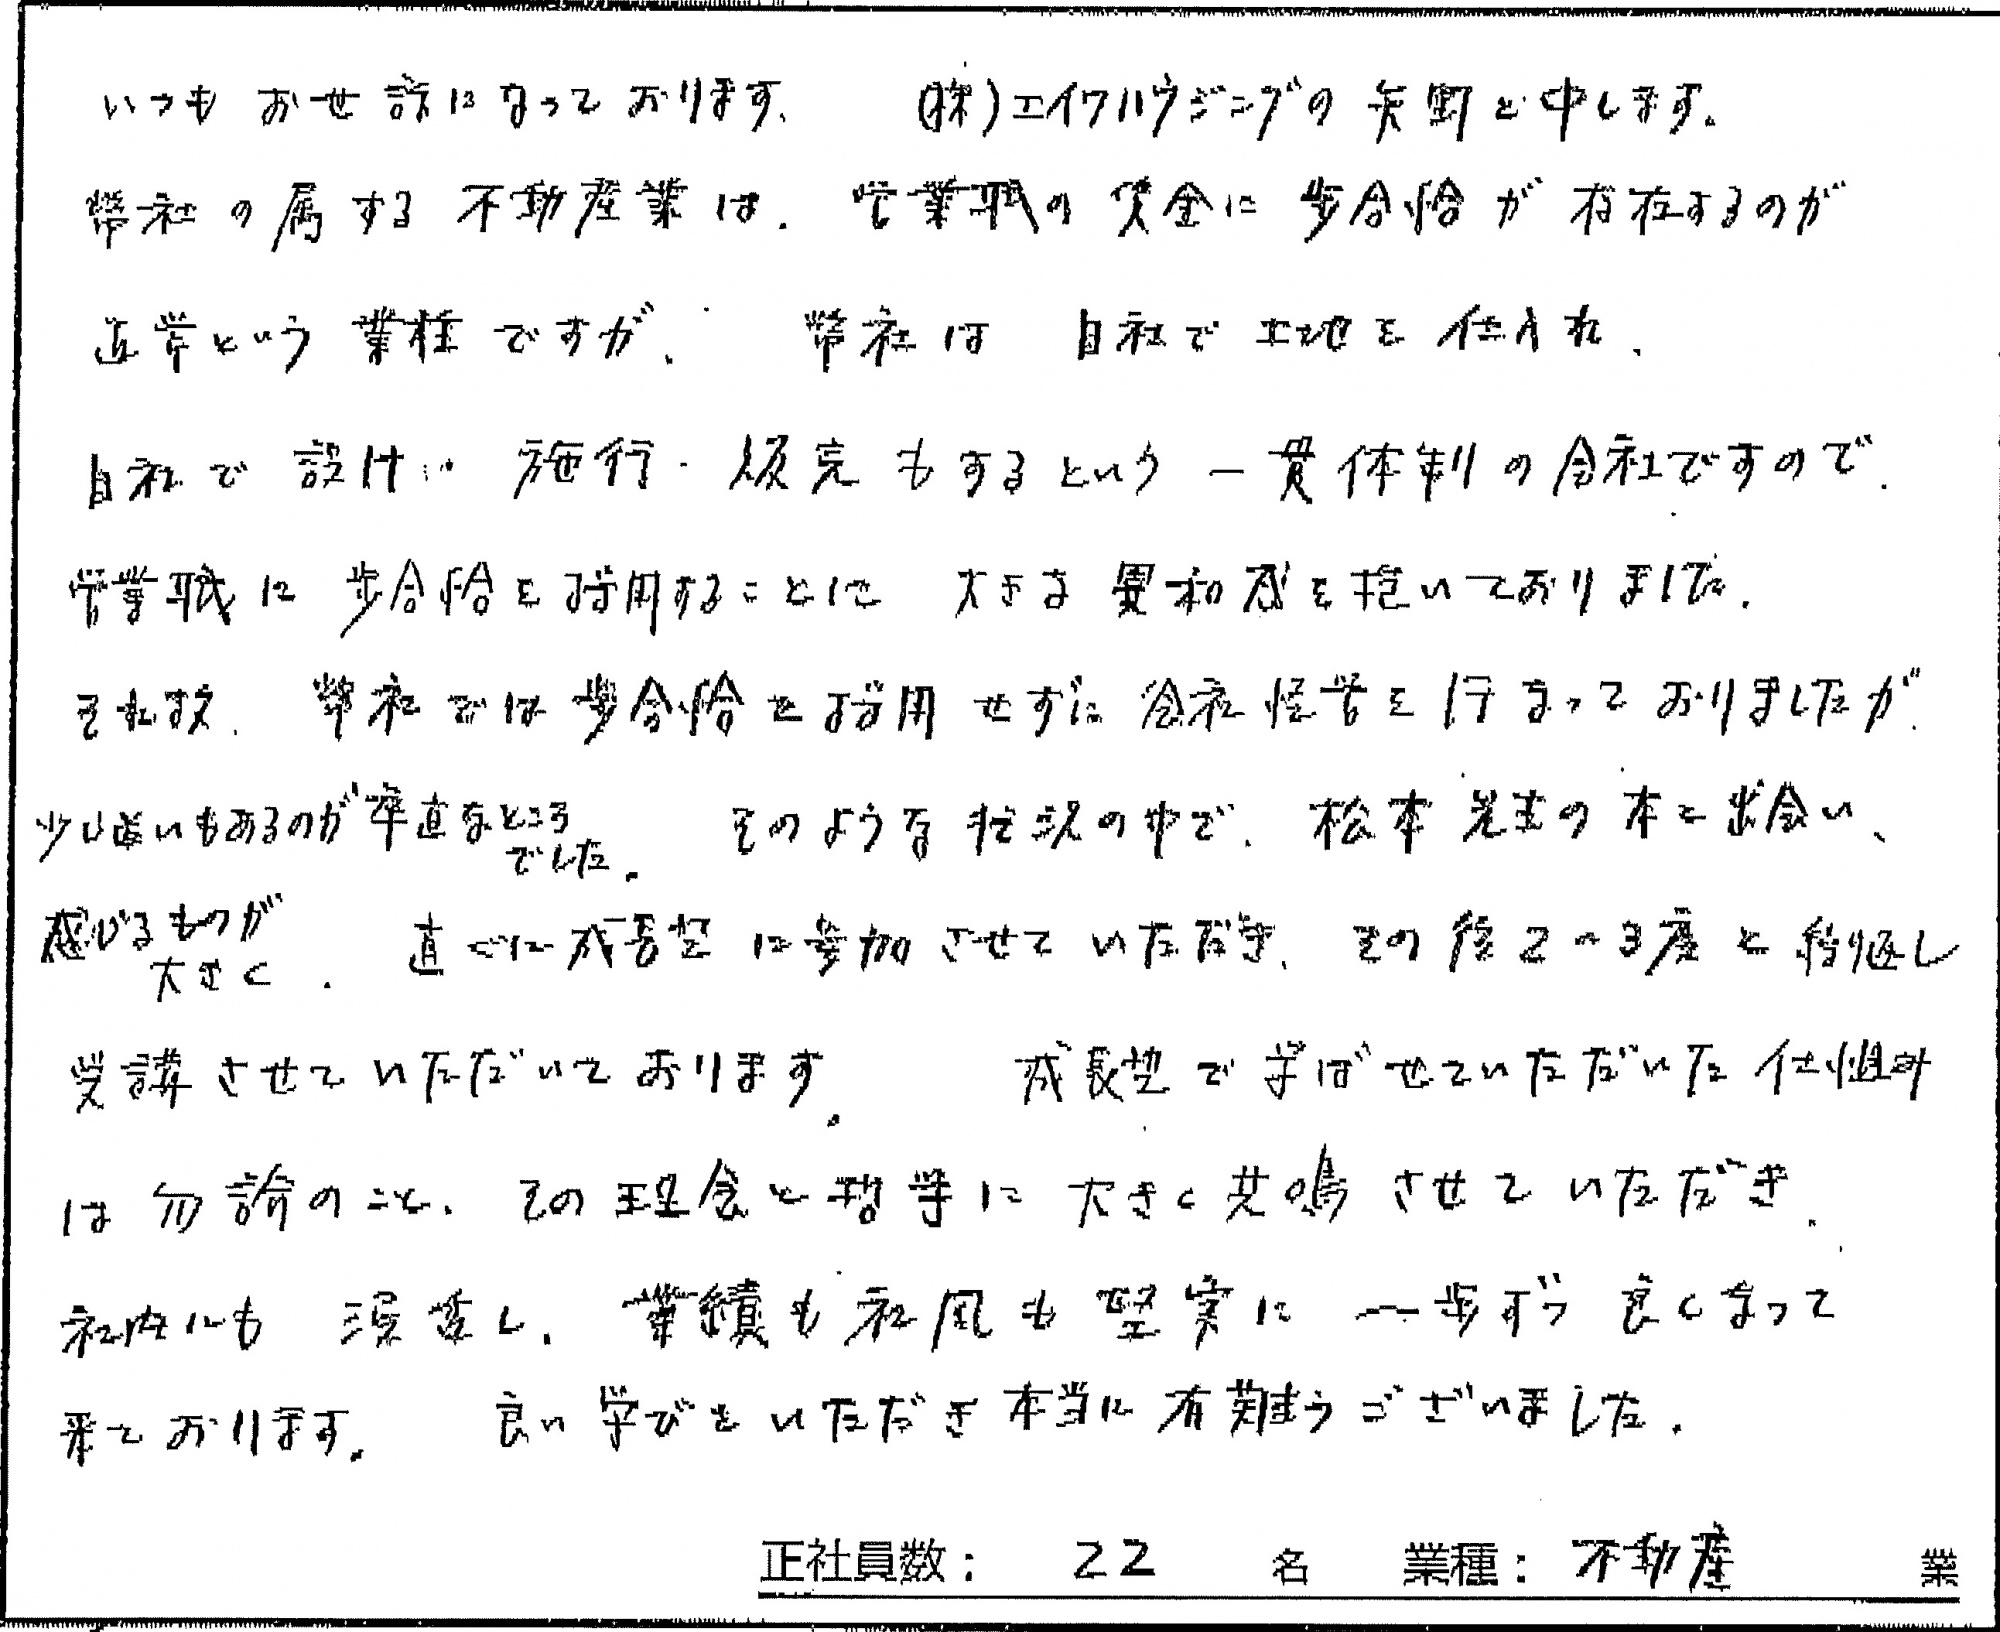 いつもお世話になっております。 (株)エイワハウジングの矢野と申します。
弊社の属する不動産業は、営業職の賃金に歩合給が存在するのが
正常という業種ですが、 弊社は 自社で土地を仕入れ、
自社で設計・施行・販売もするという一貫体制の会社ですので、
営業職に歩合給を採用することに 大きな異和感を抱いておりました。
それ故、弊社では歩合給を採用せずに会社経営を行なっておりましたが、
少し迷いもあるのが率直なところでした。 そのような状況の中で、松本先生の本と出会い、
感じるものが大きく、直ぐに成長塾に参加させていただき、その後2〜3度と繰返し
受講させていただいております。 成長塾で学ばせていただいた仕組み
は勿論のこと、その理念と哲学に大きく共鳴させていただき、
社内にも浸透し、業績も社風も堅実に一歩ずつ良くなって
来ております。 良い学びをいただき本当に有難うございました。
正社員数： 22 名 業種： 不動産 業